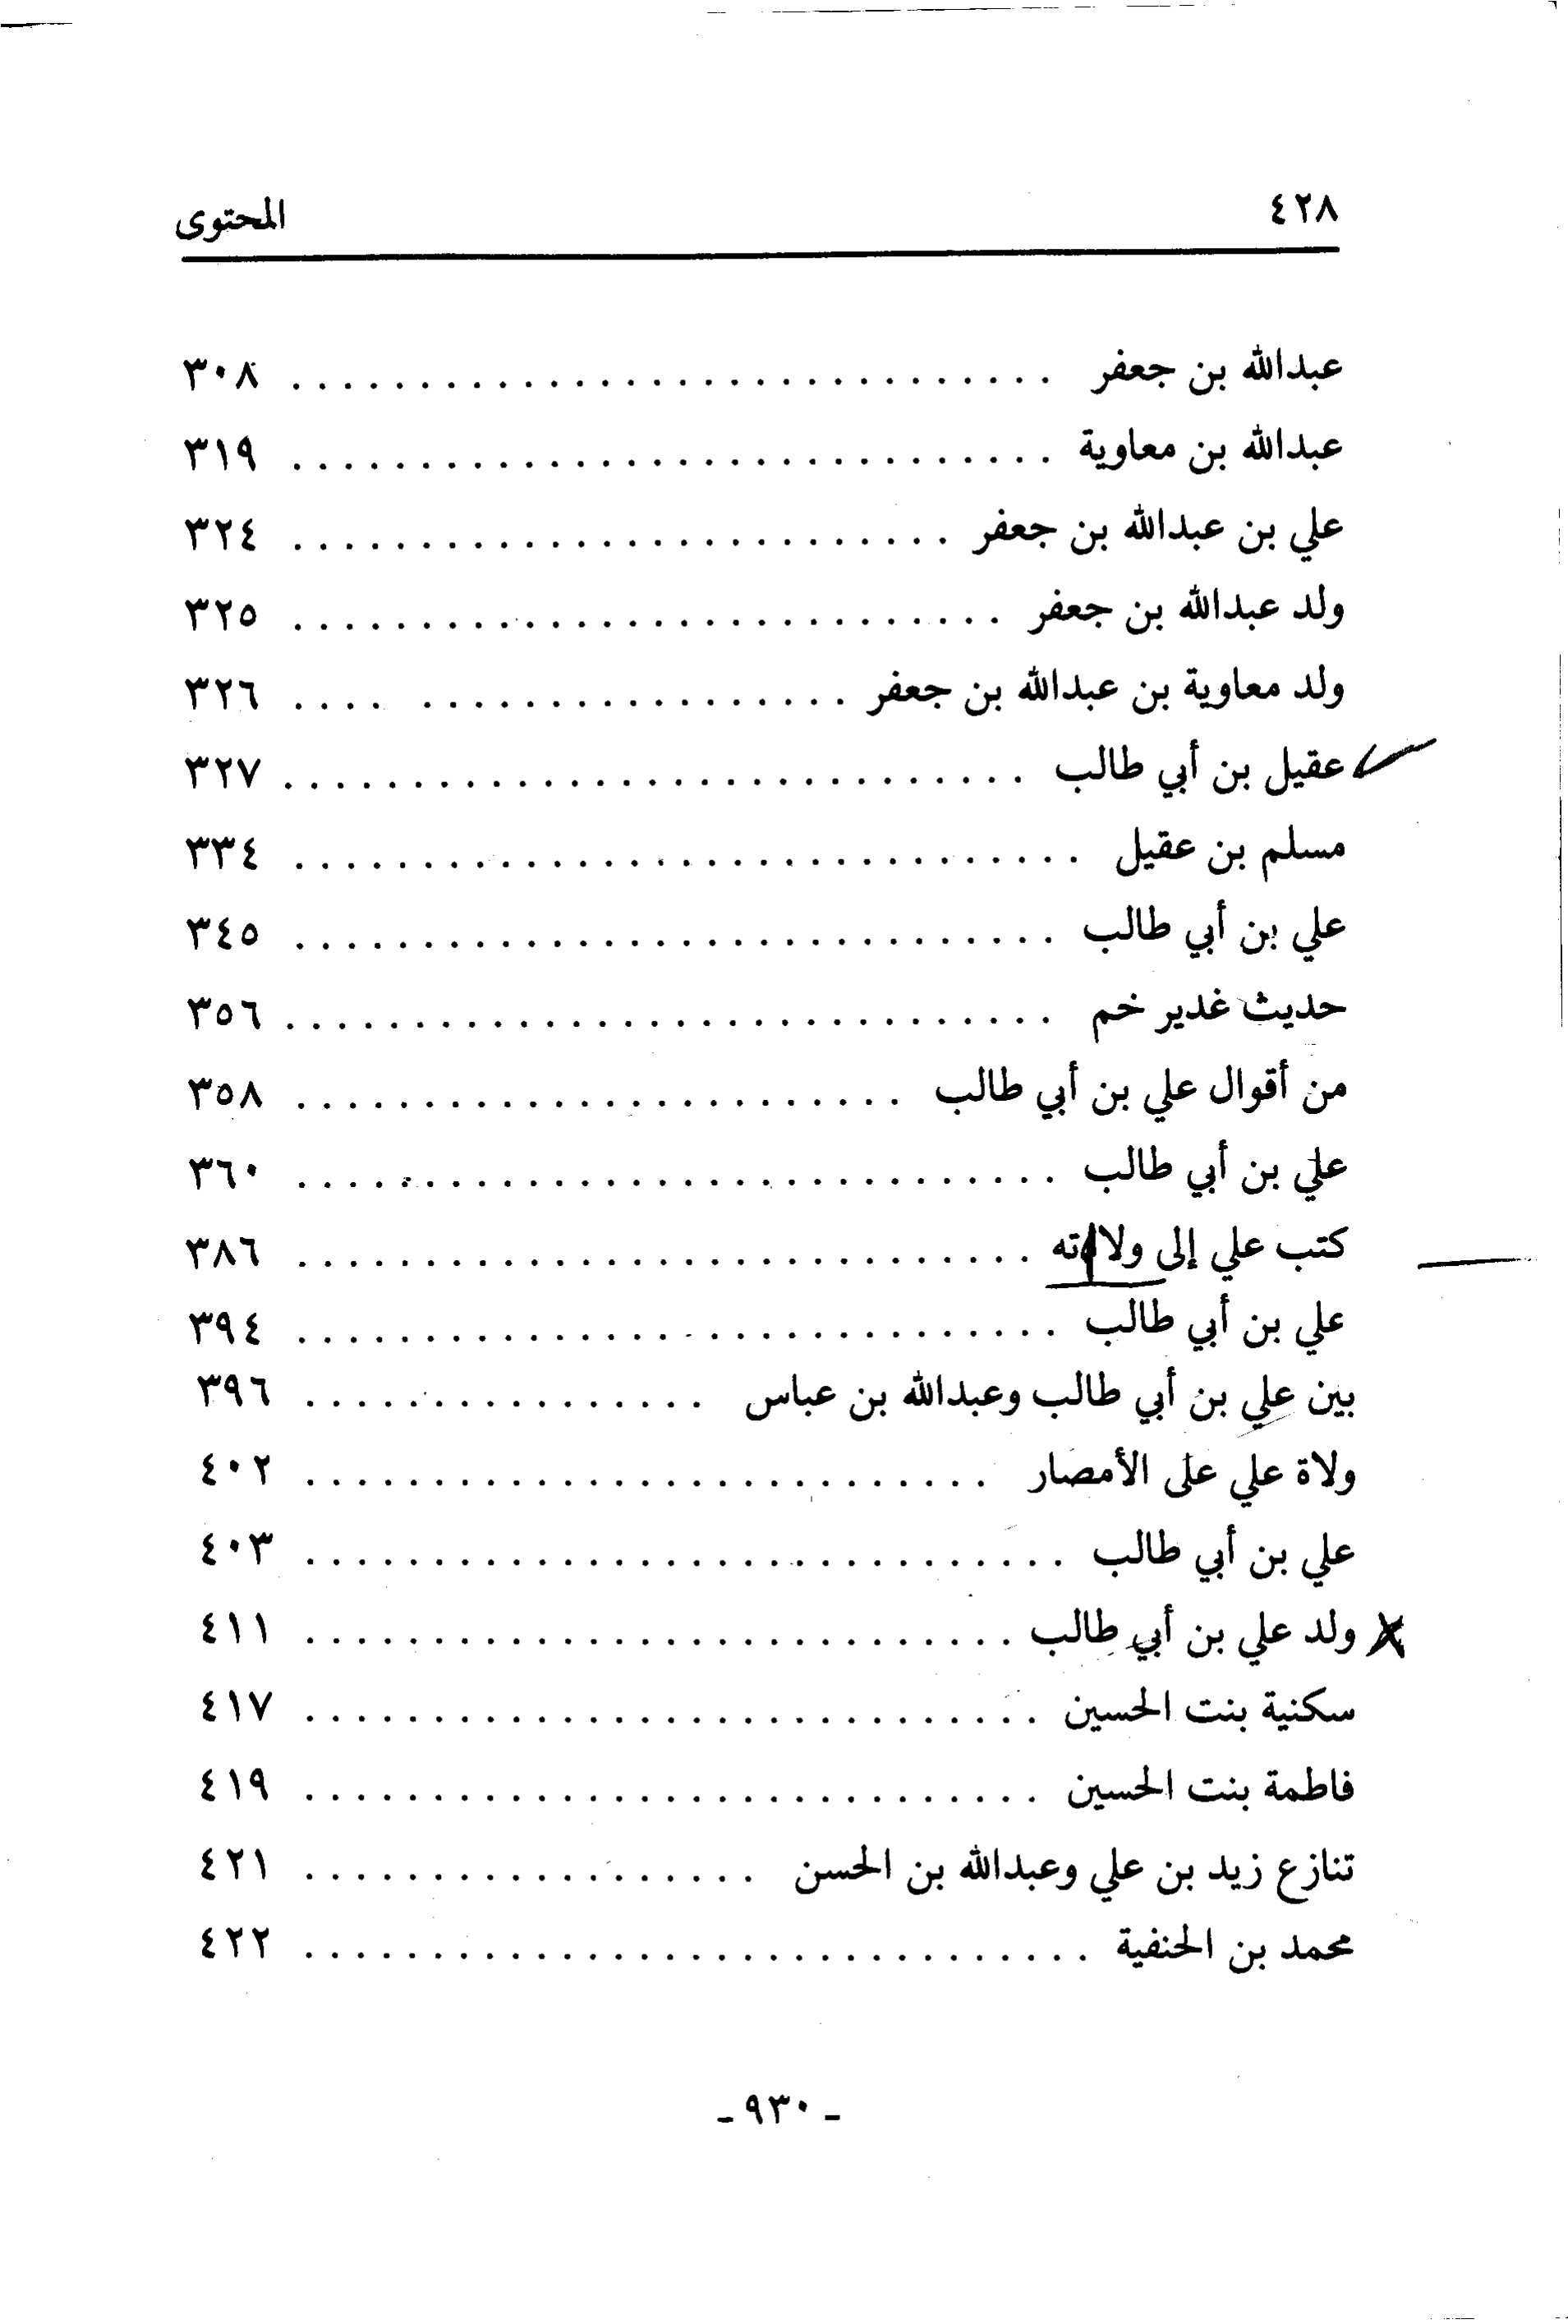 ٤٢٨ المحتوى
عبدالله بن جعفر . . . . . . . . . . . . . . . . . . . . . . . . . . . . . . ٣٠٨
عبدالله بن معاوية . . . . . . . . . . . . . . . . . . . . . . . . . . . . . . ٣١٩
علي بن عبدالله بن جعفر . . . . . . . . . . . . . . . . . . . . . . . . . . ٣٢٤
ولد عبدالله بن جعفر . . . . . . . . . . . . . . . . . . . . . . . . . . . . ٣٢٥
ولد معاوية بن عبدالله بن جعفر . . . . . . . . . . . . . . . . . . . . . ٣٢٦
عقيل بن أبي طالب . . . . . . . . . . . . . . . . . . . . . . . . . . . . . ٣٢٧
مسلم بن عقيل . . . . . . . . . . . . . . . . . . . . . . . . . . . . . . . ٣٣٤
علي بن أبي طالب . . . . . . . . . . . . . . . . . . . . . . . . . . . . . . ٣٤٥
حديث غدير خم . . . . . . . . . . . . . . . . . . . . . . . . . . . . . . ٣٥٦
من أقوال علي بن أبي طالب . . . . . . . . . . . . . . . . . . . . . . . . ٣٥٨
علي بن أبي طالب . . . . . . . . . . . . . . . . . . . . . . . . . . . . . . ٣٦٠
كتب علي إلى . . . . . . . . . . . . . . . . . . . . . . . . . . . . . ٣٨٦
علي بن أبي طالب . . . . . . . . . . . . . . . . . . . . . . . . . . . . . . ٣٩٤
بين علي بن أبي طالب وعبدالله بن عباس . . . . . . . . . . . . . . . . ٣٩٦
ولاة علي على الأمصار . . . . . . . . . . . . . . . . . . . . . . . . . . . ٤٠٢
علي بن أبي طالب . . . . . . . . . . . . . . . . . . . . . . . . . . . . . . ٤٠٣
ولد علي بن أبي طالب . . . . . . . . . . . . . . . . . . . . . . . . . . . . ٤١١
سكنية بنت الحسين . . . . . . . . . . . . . . . . . . . . . . . . . . . . . ٤١٧
فاطمة بنت الحسين . . . . . . . . . . . . . . . . . . . . . . . . . . . . . ٤١٩
تنازع زيد بن علي وعبدالله بن الحسن . . . . . . . . . . . . . . . . . . ٤٢١
محمد بن الحنفية . . . . . . . . . . . . . . . . . . . . . . . . . . . . . . . ٤٢٢
- ٩٣٠ -